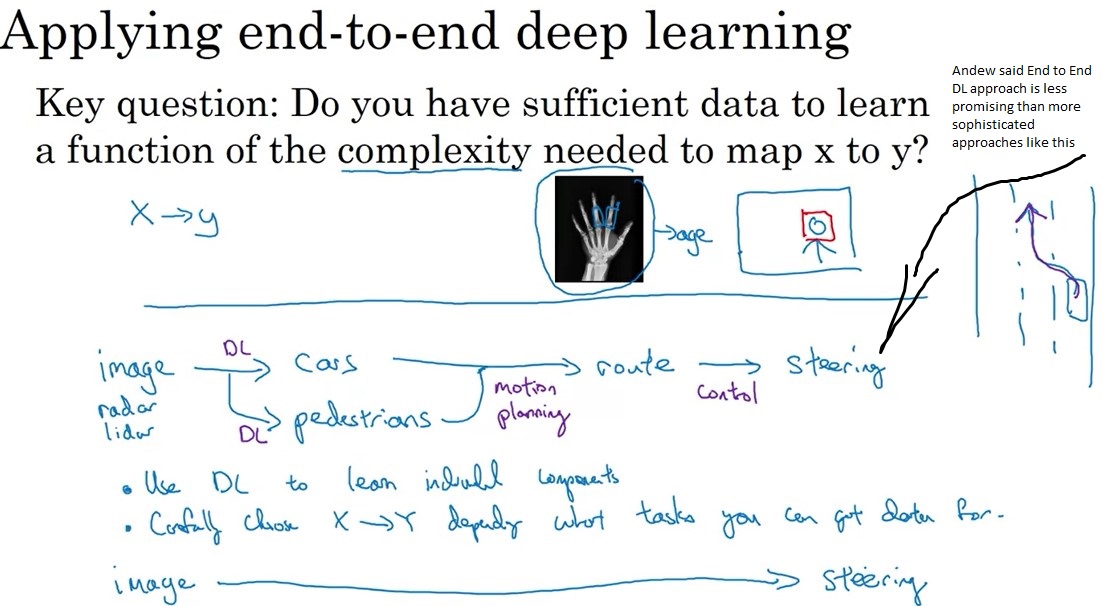 Applying end-to-end deep learning
Key question: Do you have sufficient data to learn
a function of the complexity needed to map x to y?
Andew said End to End
DL approach is less
promising than more
sophisticated
approaches like this
X → y
→ age
image
radar
lidar
DL
DL
cars
pedestrians
motion
planning
route
control
steering
• Use DL to learn individual components
• Carefully choose X → Y depending what tasks you can get data for.
image → steering